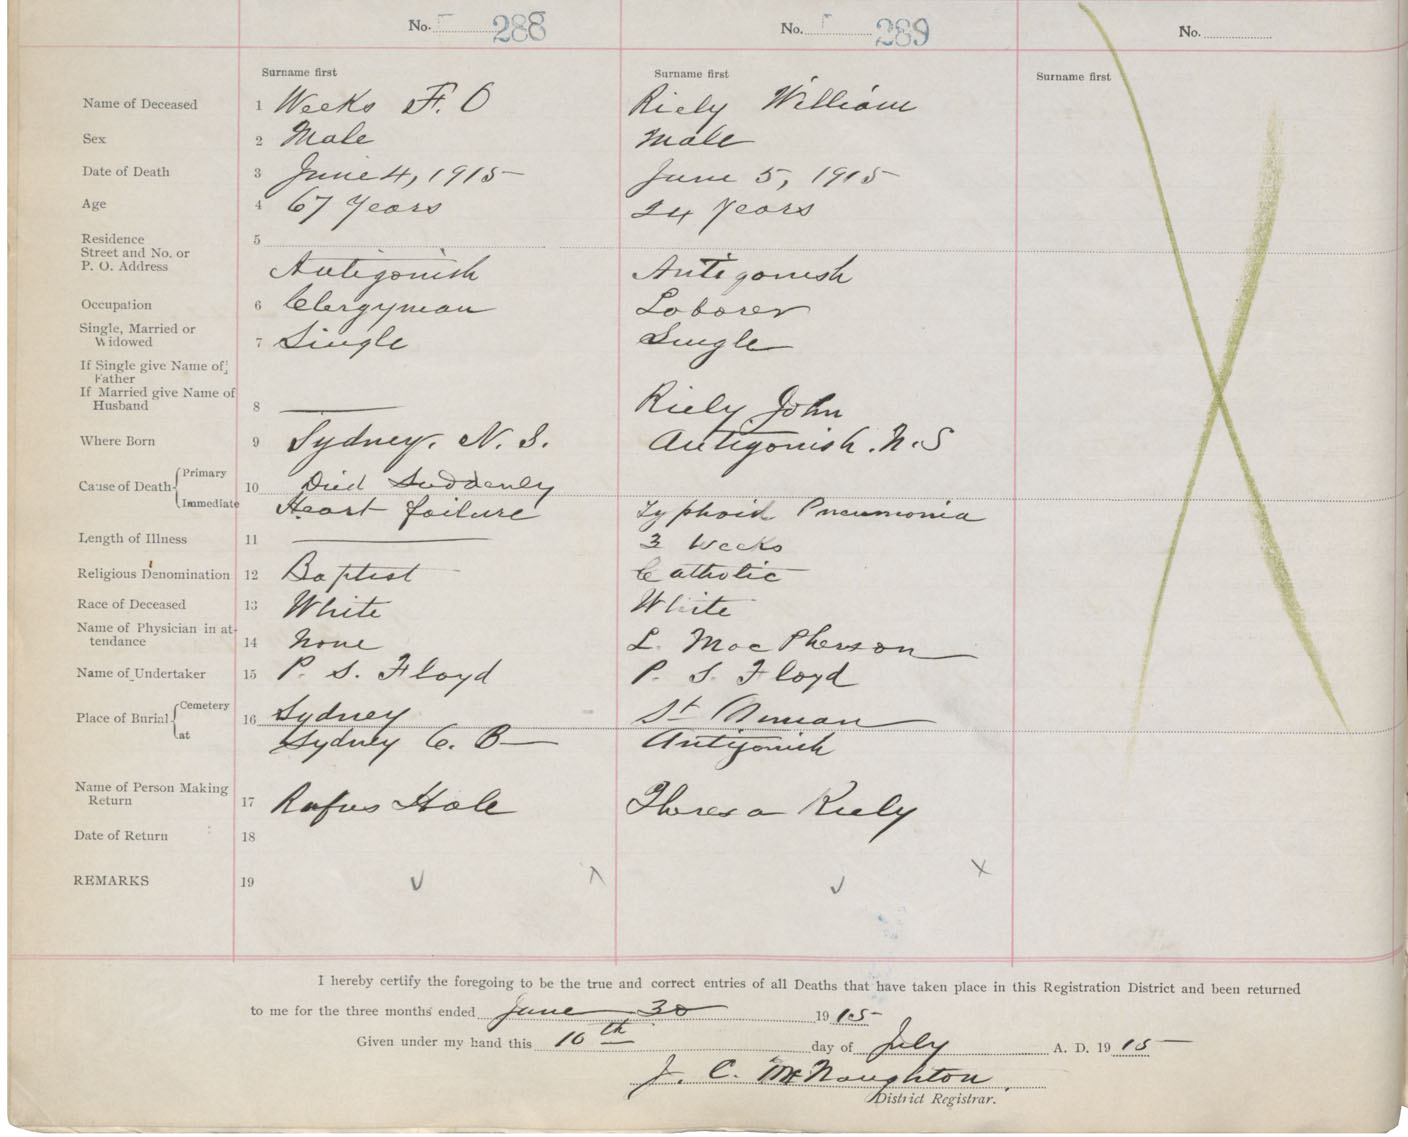 No. 288
No. 289
No.
Surname first
Surname first
Surname first
Name of Deceased 1 Weeks F. O Riely William
Sex 2 Male Male
Date of Death 3 June 4, 1915 June 5, 1915
Age 4 67 Years 24 Years
Residence 5
Street and No. or
P. O. Address Antigonish Antigonish
Occupation 6 Clergyman Laborer
Single, Married or
Widowed 7 Single Single
If Single give Name of
Father
If Married give Name of
Husband 8 Riely John
Where Born 9 Sydney. N. S. Antigonish. N. S
Cause of Death Primary 10 Died Suddenly
Immediate Heart failure Typhoid Pneumonia
Length of Illness 11 3 Weeks
Religious Denomination 12 Baptist Catholic
Race of Deceased 13 White White
Name of Physician in at-
tendance 14 None L. MacPherson
Name of Undertaker 15 P. S. Floyd P. S. Floyd
Place of Burial Cemetery 16 Sydney St Ninian
at Sydney C. B Antigonish
Name of Person Making
Return 17 Rufus Hale Theresa Riely
Date of Return 18
REMARKS 19
I hereby certify the foregoing to be the true and correct entries of all Deaths that have taken place in this Registration District and been returned
to me for the three months ended June 30 1915
Given under my hand this 10th day of July A. D. 1915
J. C. McNaughton.
District Registrar.